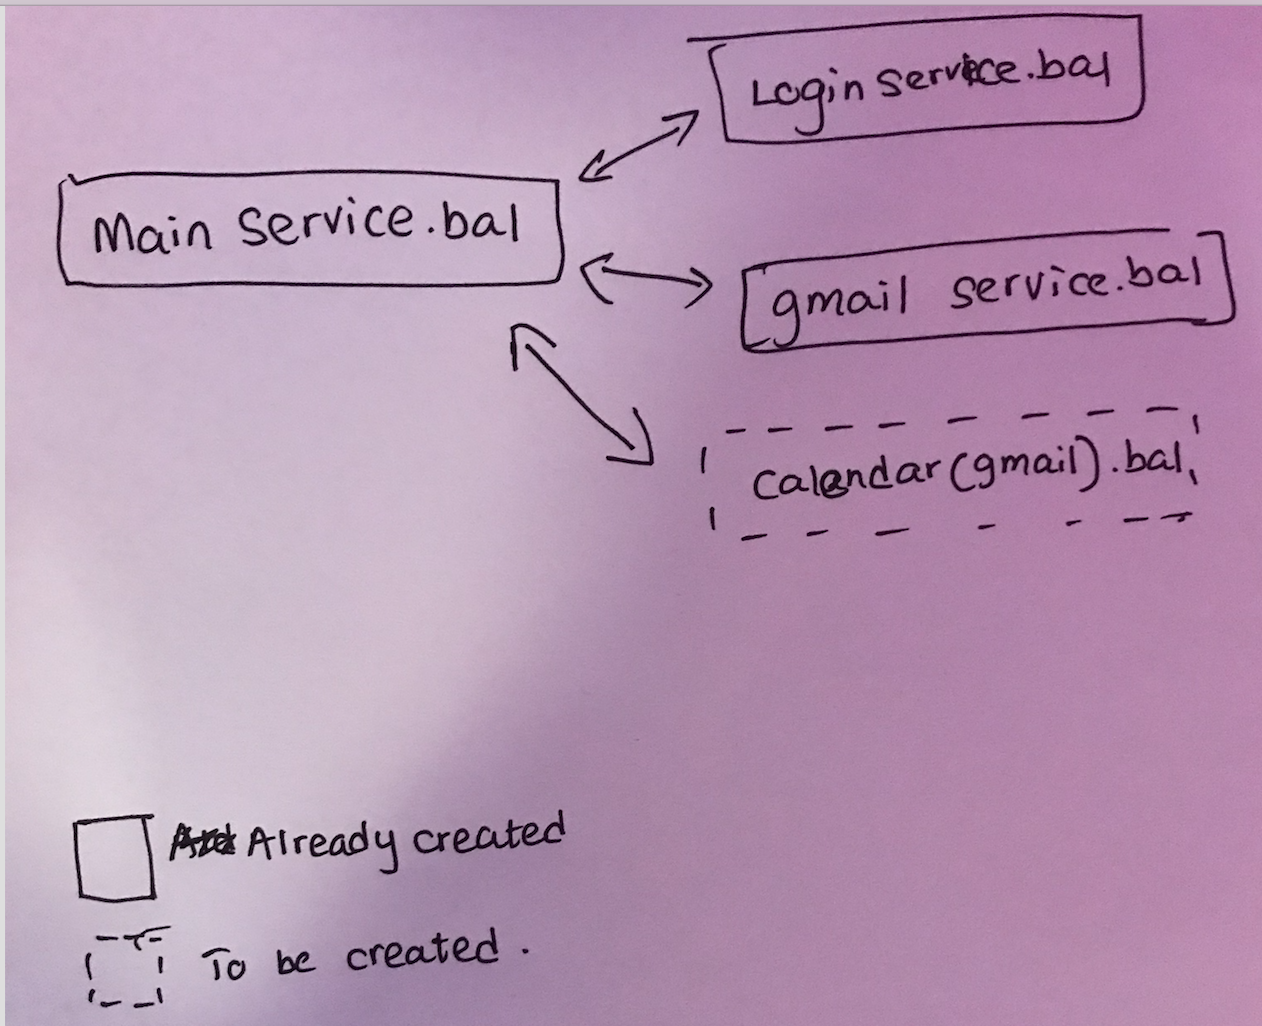 Login service.bal
Main service.bal
gmail service.bal
calendar(gmail).bal
Already created
To be created.